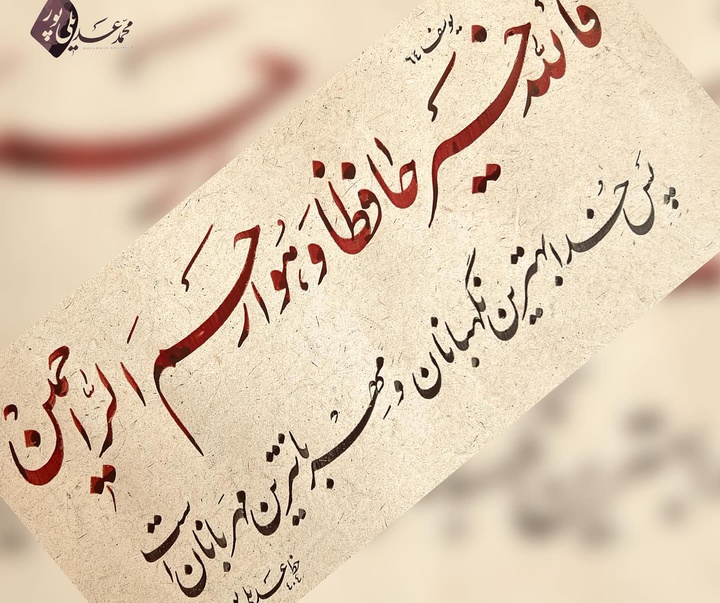 محمد عدیلی پور
یوسف ٦٤
فالله خیر حافظا و هو ارحم الراحمین
پس خدا بهترین نگهبانان و مهربانترین مهربانان است
خط عدیلی پور
۴۰۴